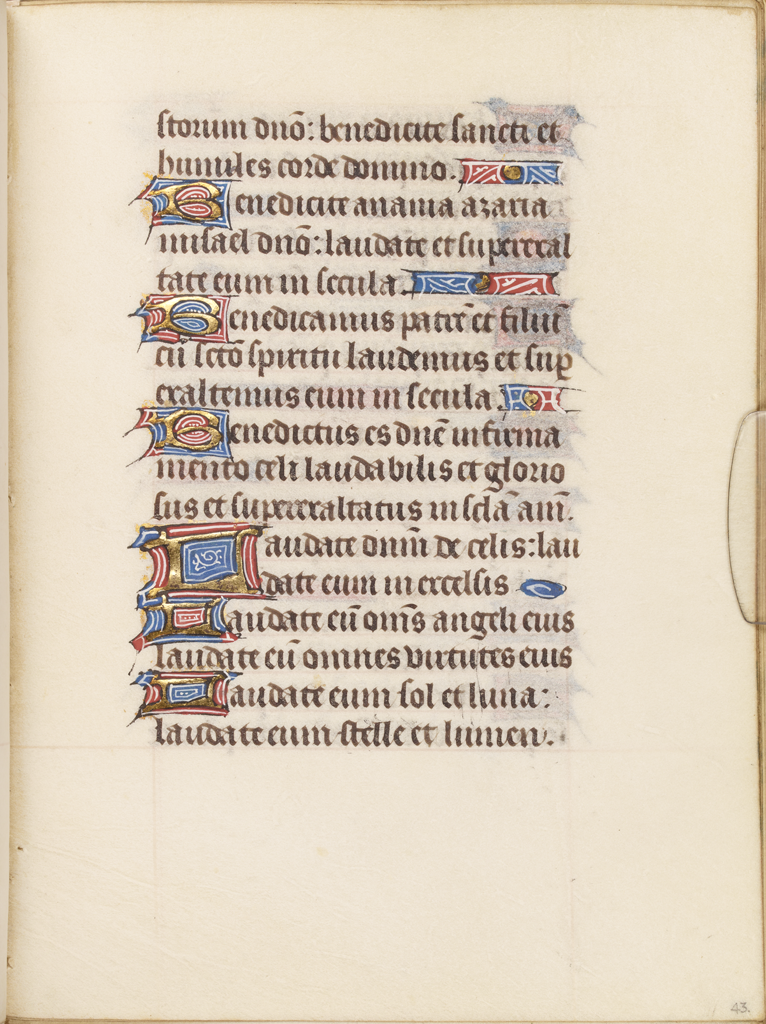 storum dnō: benedicite sancti et
humiles corde domino.
Benedicite anania azaria
misael dnō: laudate et superexal
tate eum in secula.
Benedicamus patrē et filiū
cū sctō spiritu laudemus et sup
exaltemus eum in secula.
Benedictus es dnē in firma
mento celi laudabilis et glorio
sus et superexaltatus in sclā am̄.
Laudate dnm̄ de celis: lau
date eum in excelsis
Laudate eū om̄s angeli eius
laudate eū omnes virtutes eius
Laudate eum sol et luna:
laudate eum stelle et lumen.
43.